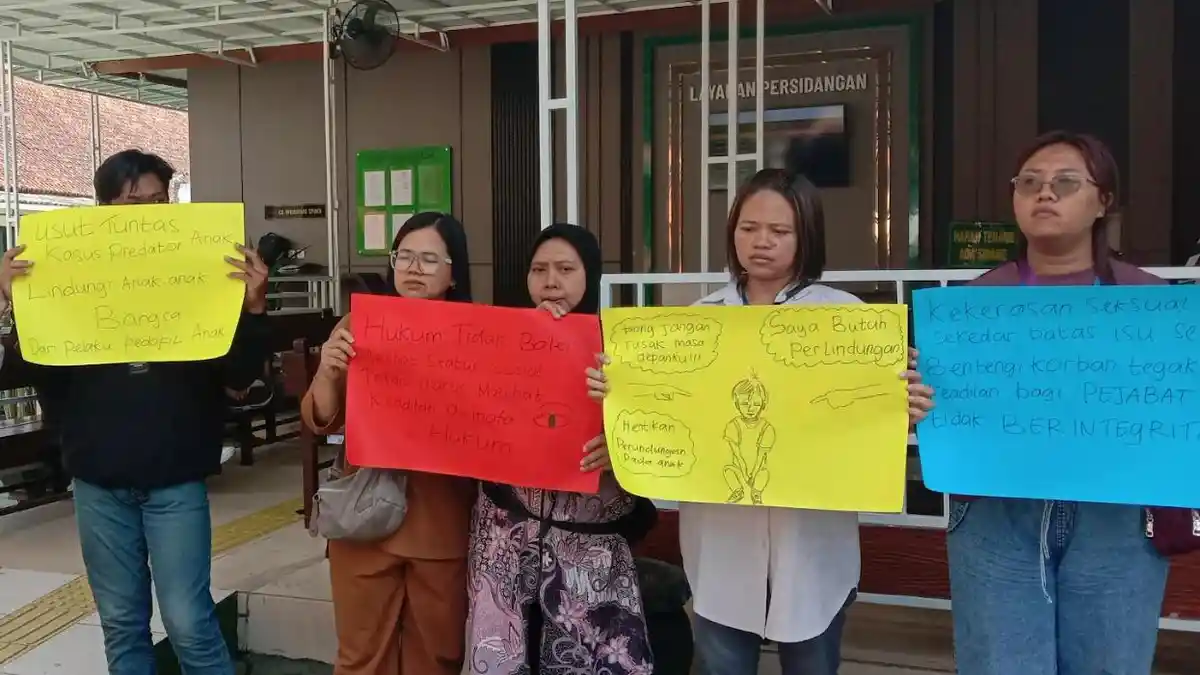 LAYANAN PERSIDANGAN
HARAP TENANG
ADA SIDANG
Usut Tuntas
Kasus Predator Anak
Lindungi Anak-anak
Bangsa
Dari Pelaku Pedofil Anak
Hukum Tidak Boleh
Melihat Status Sosial
Tetapi Harus Melihat
Keadilan Dimata
Hukum
tolong jangan
rusak masa
depanku!!!
Saya Butuh
Perlindungan
Hentikan
Perundungan
Pada anak
Kekerasan Seksual
sekedar batas isu se
Bentengi korban tegak
keadilan bagi PEJABAT
tidak BERINTEGRIT